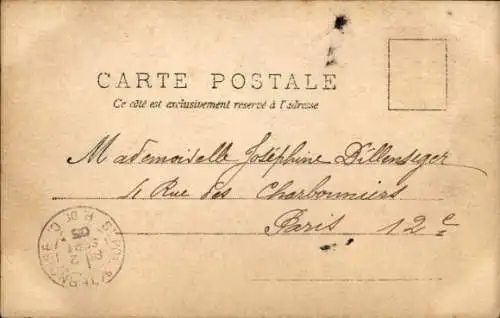 CARTE POSTALE
Ce côté est exclusivement reservé à l'adresse
Mademoiselle Joséphine Dillenseger
4 Rue des Charbonniers
Paris 12e